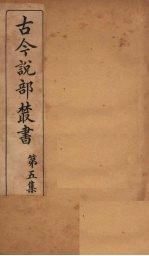 古今說部叢書
第五集